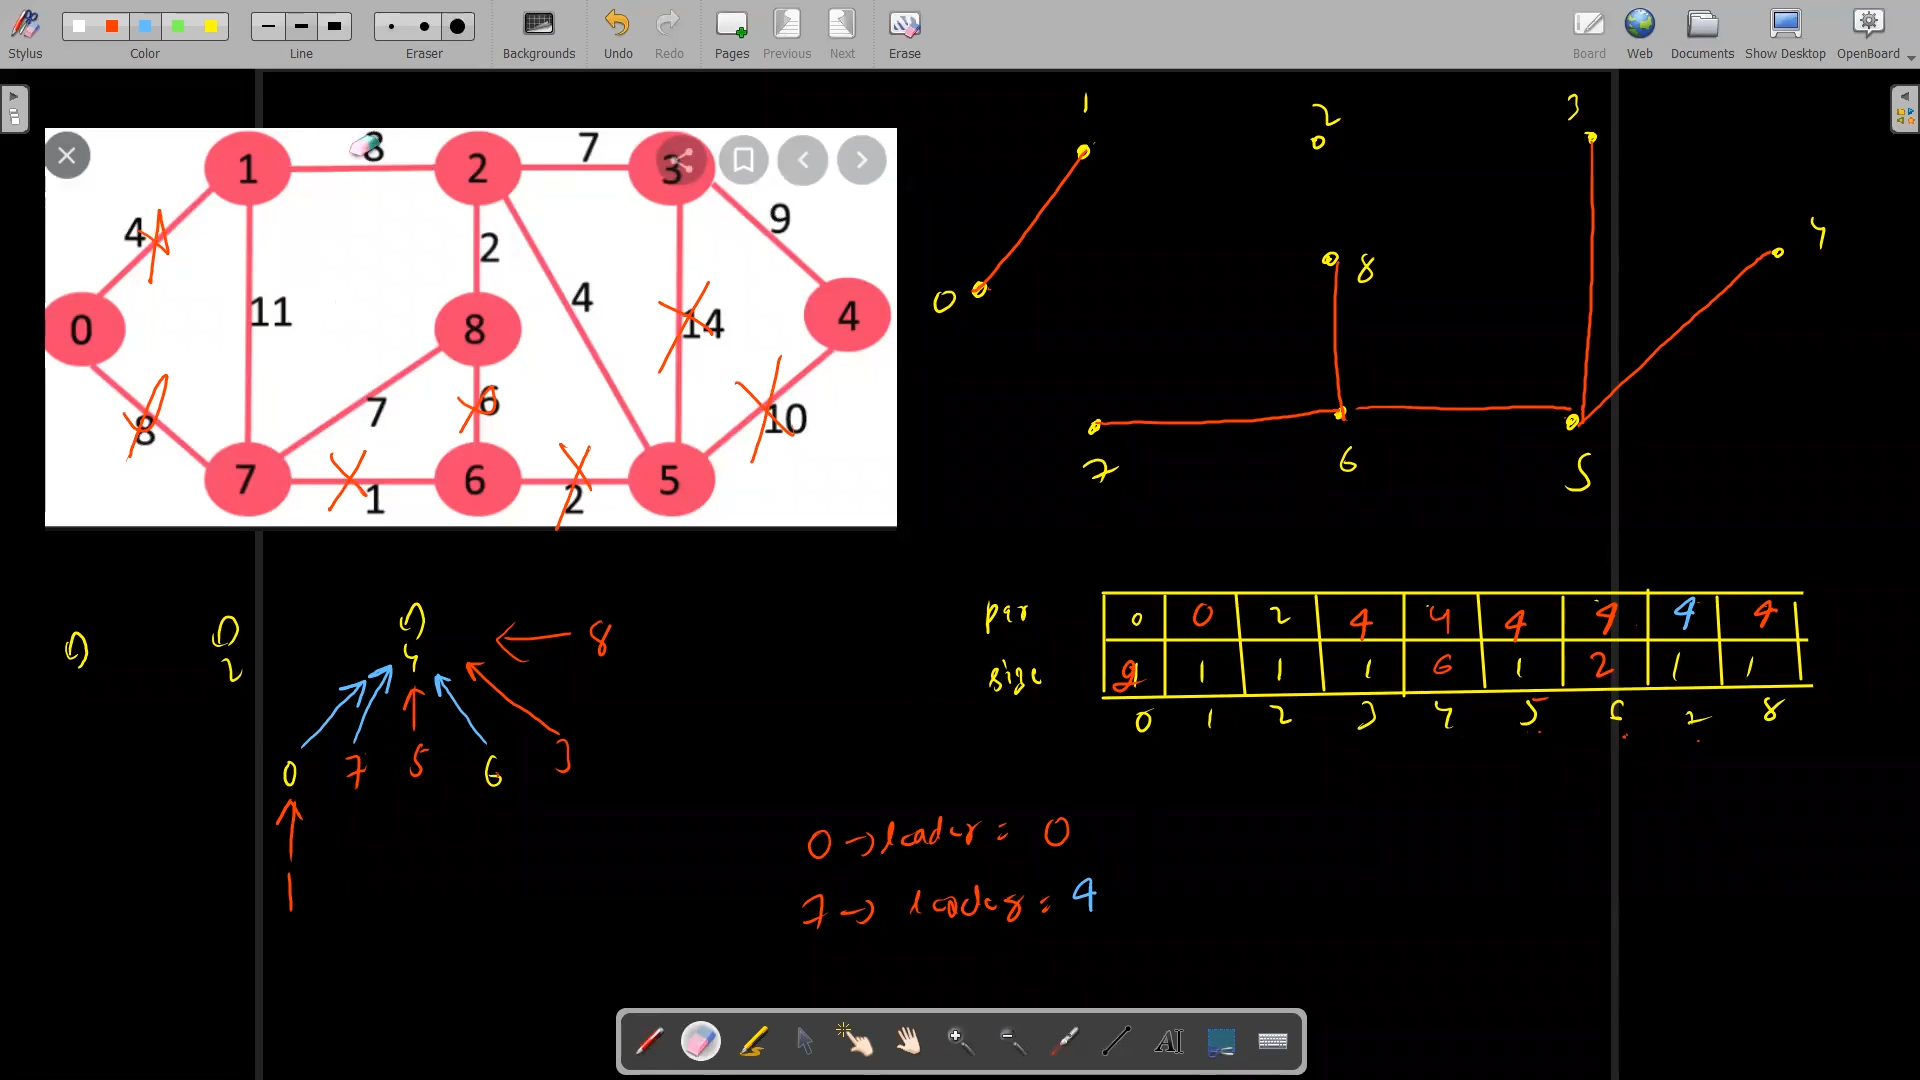 Stylus Color Line Eraser Backgrounds Undo Redo Pages Previous Next Erase Board Web Documents Show Desktop OpenBoard
1 8 2 7 3
4 2 9
11 4
0 8 14 4
8 7 6 10
7 1 6 2 5
1 2 3
0 8 4
7 6 5
par 0 0 2 4 4 4 4 4 4
size 2 1 1 1 6 1 2 1 1
0 1 2 3 4 5 6 7 8
2 4 8
0 7 5 6 3
1
0 → leader = 0
7 → leader = 4
AI